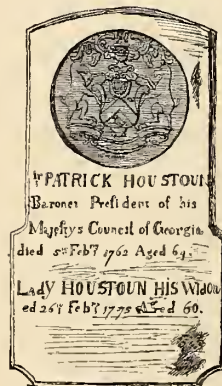 Sr PATRICK HOUSTOUN
Baronet President of his
Majestys Council of Georgia
died 5th Feby 1762 Aged 64.
LADY HOUSTOUN HIS WIDOW
ed 26th Feby 1775 Aged 60.